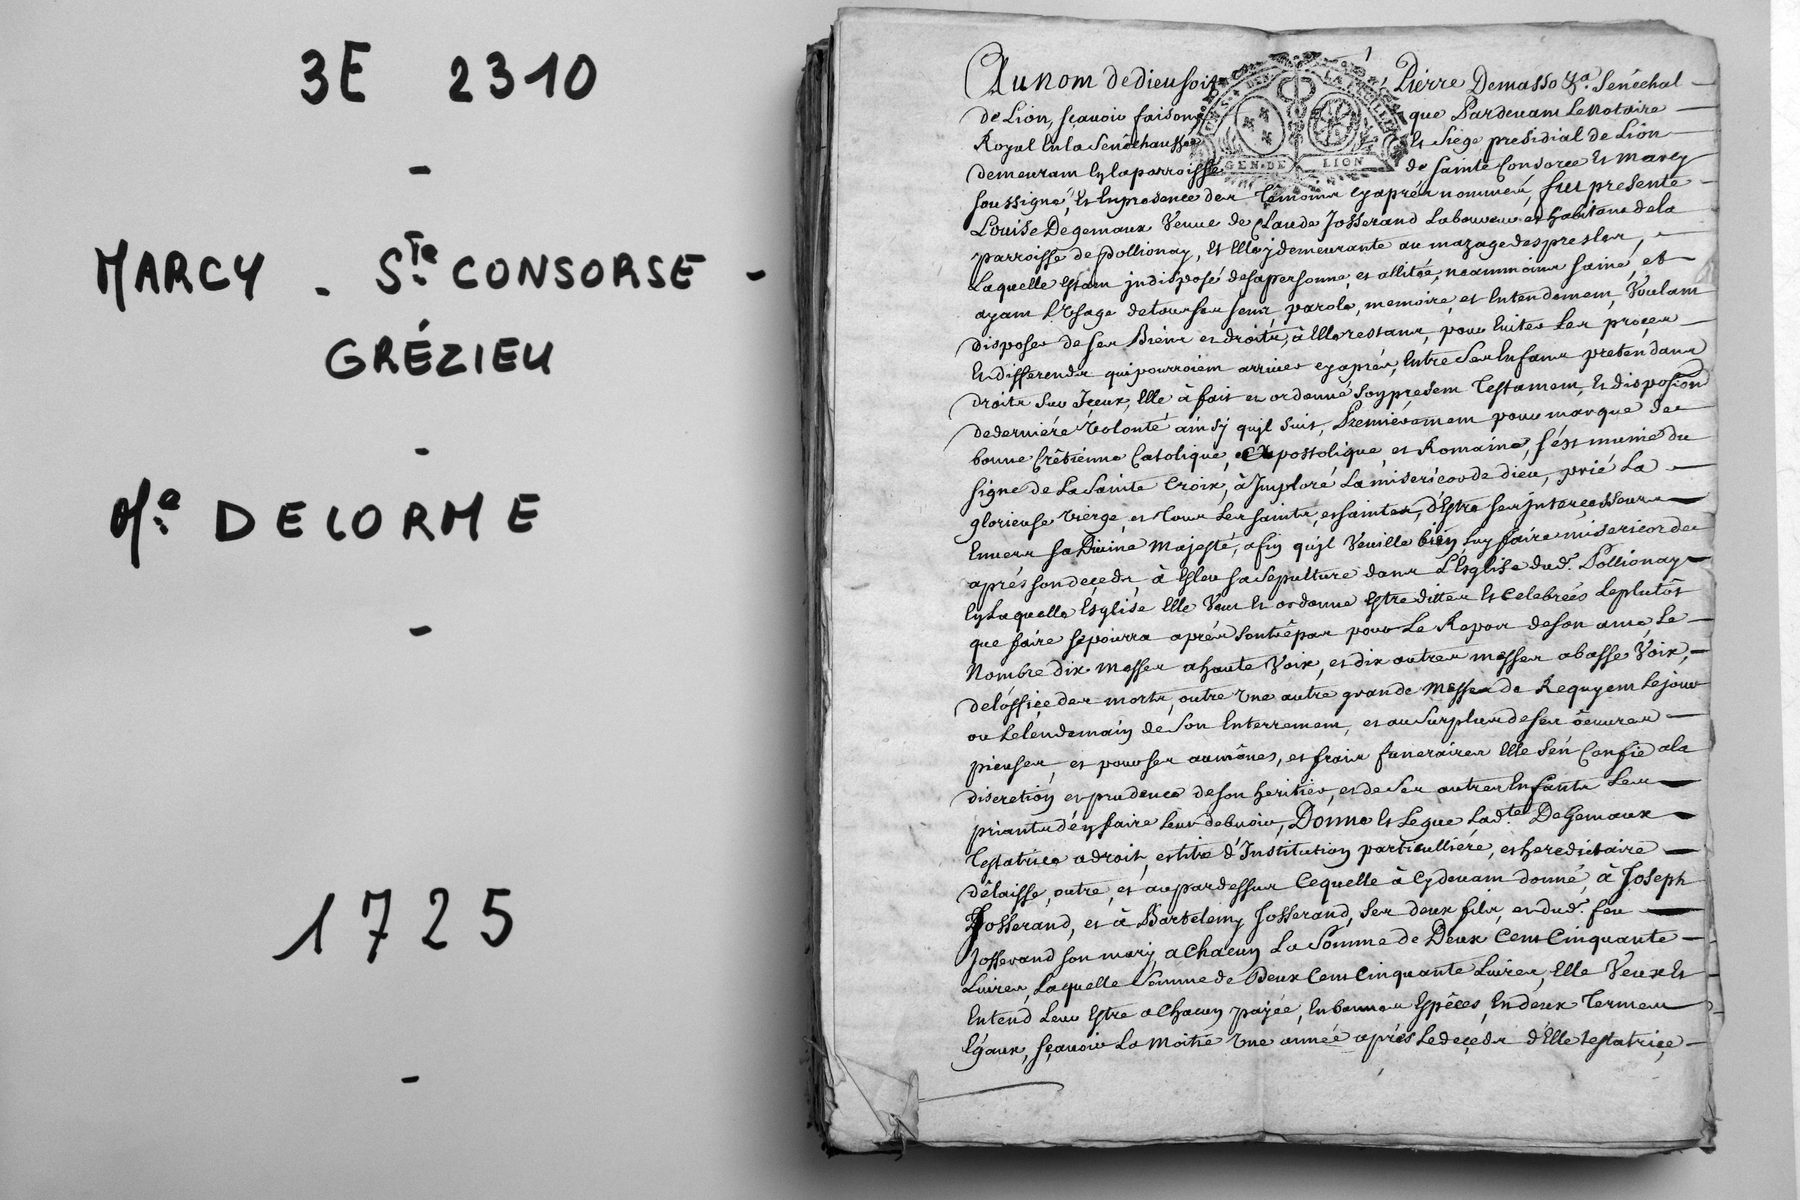 3E 2310
-
MARCY - Ste CONSORSE -
GRÉZIEU
-
Me DELORME
-
1725
-
Au nom de dieu soit Pierre Demasso &a. Senéchal
de Lion, sçavoir faisons que Pardevant Le Notaire
Royal en la Senéchaussée et Siége presidial de Lion
demeurant en la parroisse de Sainte Consorce et Marcy
soussigné, et en presence des Temoins cy aprés nommés, fut presente
Louise Degemaux Veuve de Claude Josserand Laboureur et habitant de la
parroisse de pollionay, et Elle y demeurante au mazage des presles,
Laquelle estant jndisposé de sa personne, et allitée, neanmoins saine, et
ayant L'Usage de tous ses sens, parole, memoire, et Entendement, Voulant
disposer de ses Biens et droits, à Elle restans, pour Eviter Les procés
et differends qui pourroient arriver cy aprés, Entre Ses Enfans pretendans
droits sur Iceux, Elle à fait et ordonné son present Testament, et disposion
de derniére Volonté ainsy qu'jl suit, Premiérement pour marque de
bonne Crêtienne Catolique, apostolique, et Romaine, s'est munie du
signe de La Sainte Croix, à Imploré La misericorde de dieu, prié La
glorieuse Vierge, et Tous Les saints, et saintes, d'Estre ses jntercesseurs
Envers Sa Divine Majesté, afin qu'jl Veuille bien Luy faire misericorde
aprés son decedz, à Esleu sa sepulture dans L'Eglise dud. Pollionay
En Laquelle Esglise Elle Veut et ordonne Estre dittes et Celebrées Le plutôt
que faire se pourra aprés son trêpas pour Le Repos de son ame, Le
Nombre dix messes a haute Voix, et dix autres messes a basse Voix,
de l'office des morts, outre Une autre grande Messe de Requyem Le jour
ou Le lendemain de son Enterrement, et au surplus de ses oêuvres
pieuses, et pour ses aumônes, et frais funeraires Elle s'en Confie a la
discretion et prudence de son heritier, et de ses autres Enfants Les
priants d'en faire Leur debvoir, Donne et Legue Lad.te DeGemaux
Testatrice a droit, et titre d'Institution particulliére, et heredittaire
délaisse, outre, et au par dessus Ce quelle à Cy devant donné, à Joseph
Josserand, et à Bartelemy Josserand, Ses deux fils, et dud. feu
Josserand son mary, a Chacun La Somme de Deux Cent Cinquante
Livres, Laquelle Somme de Deux Cent Cinquante Livres, Elle Veux et
Entend Leur Estre a Chacun payée, En bonnes Espéces, En deux Termes
Egaux, sçavoir La Moitié Une année aprés Le decedz d'Elle testatrice